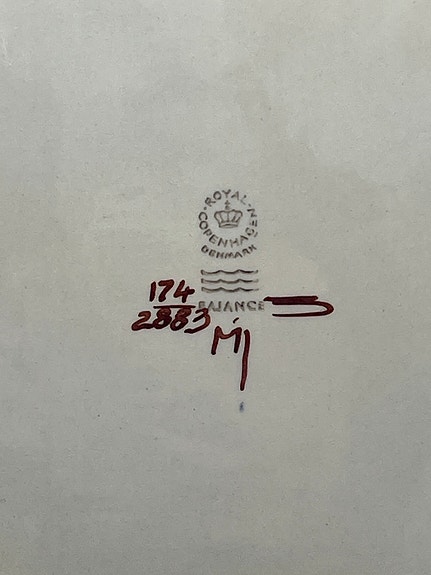 ROYAL COPENHAGEN
DENMARK
174
2883
FAJANCE